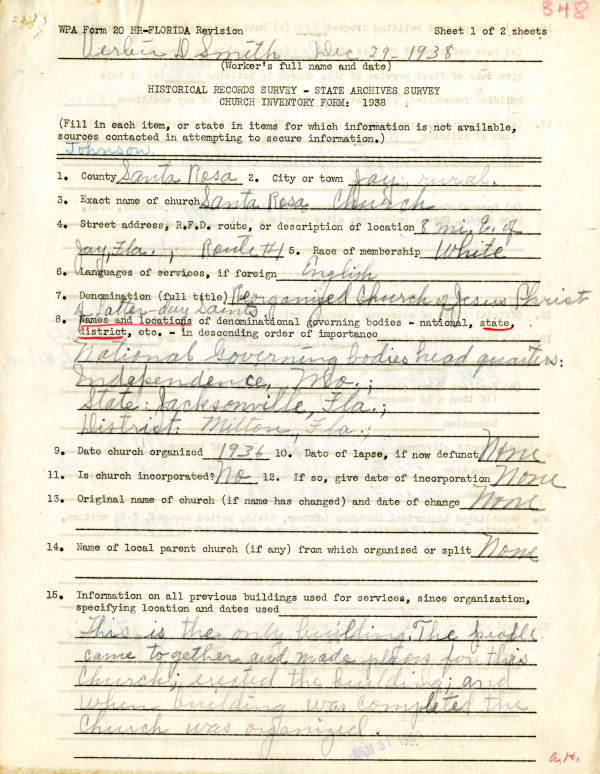 348
WPA Form 20 HR-FLORIDA Revision Sheet 1 of 2 sheets
D Smith Dec 29-1938
(Worker's full name and date)
HISTORICAL RECORDS SURVEY - STATE ARCHIVES SURVEY
CHURCH INVENTORY FORM: 1938
(Fill in each item, or state in items for which information is not available,
sources contacted in attempting to secure information.)
Johnson
1. County Santa Rosa 2. City or town Jay, rural.
3. Exact name of church Santa Rosa Church
4. Street address, R.F.D. route, or description of location 8 mi. E. of
Jay, Fla., Route #1 5. Race of membership White
6. Languages of services, if foreign English
7. Denomination (full title) Reorganized Church of Jesus Christ
of Latter-day Saints
8. Names and locations of denominational governing bodies - national, state,
district, etc. - in descending order of importance
National Governing bodies head quarters:
Independence, Mo.;
State: Jacksonville, Fla.;
District: Milton, Fla.;
9. Date church organized 1936 10. Date of lapse, if now defunct None
11. Is church incorporated? No 12. If so, give date of incorporation None
13. Original name of church (if name has changed) and date of change None
14. Name of local parent church (if any) from which organized or split None
15. Information on all previous buildings used for services, since organization,
specifying location and dates used
This is the only building. The people
came together and made plans for this
Church; erected the building; and
when building was completed the
Church was organized.
JAN 31
a.H.